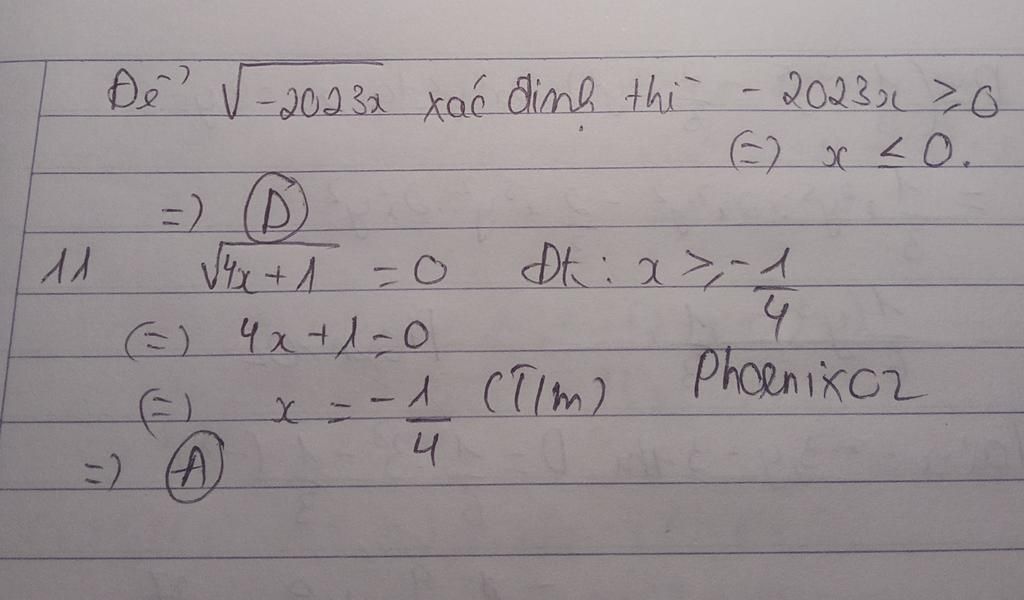 Để √-2023x xác định thì -2023x ≥ 0
(=) x ≤ 0.
=) D
11 √4x+1 = 0 Đk: x ≥ -1/4
(=) 4x+1=0
(=) x = -1/4 (T/m) Phoenixcz
=) A